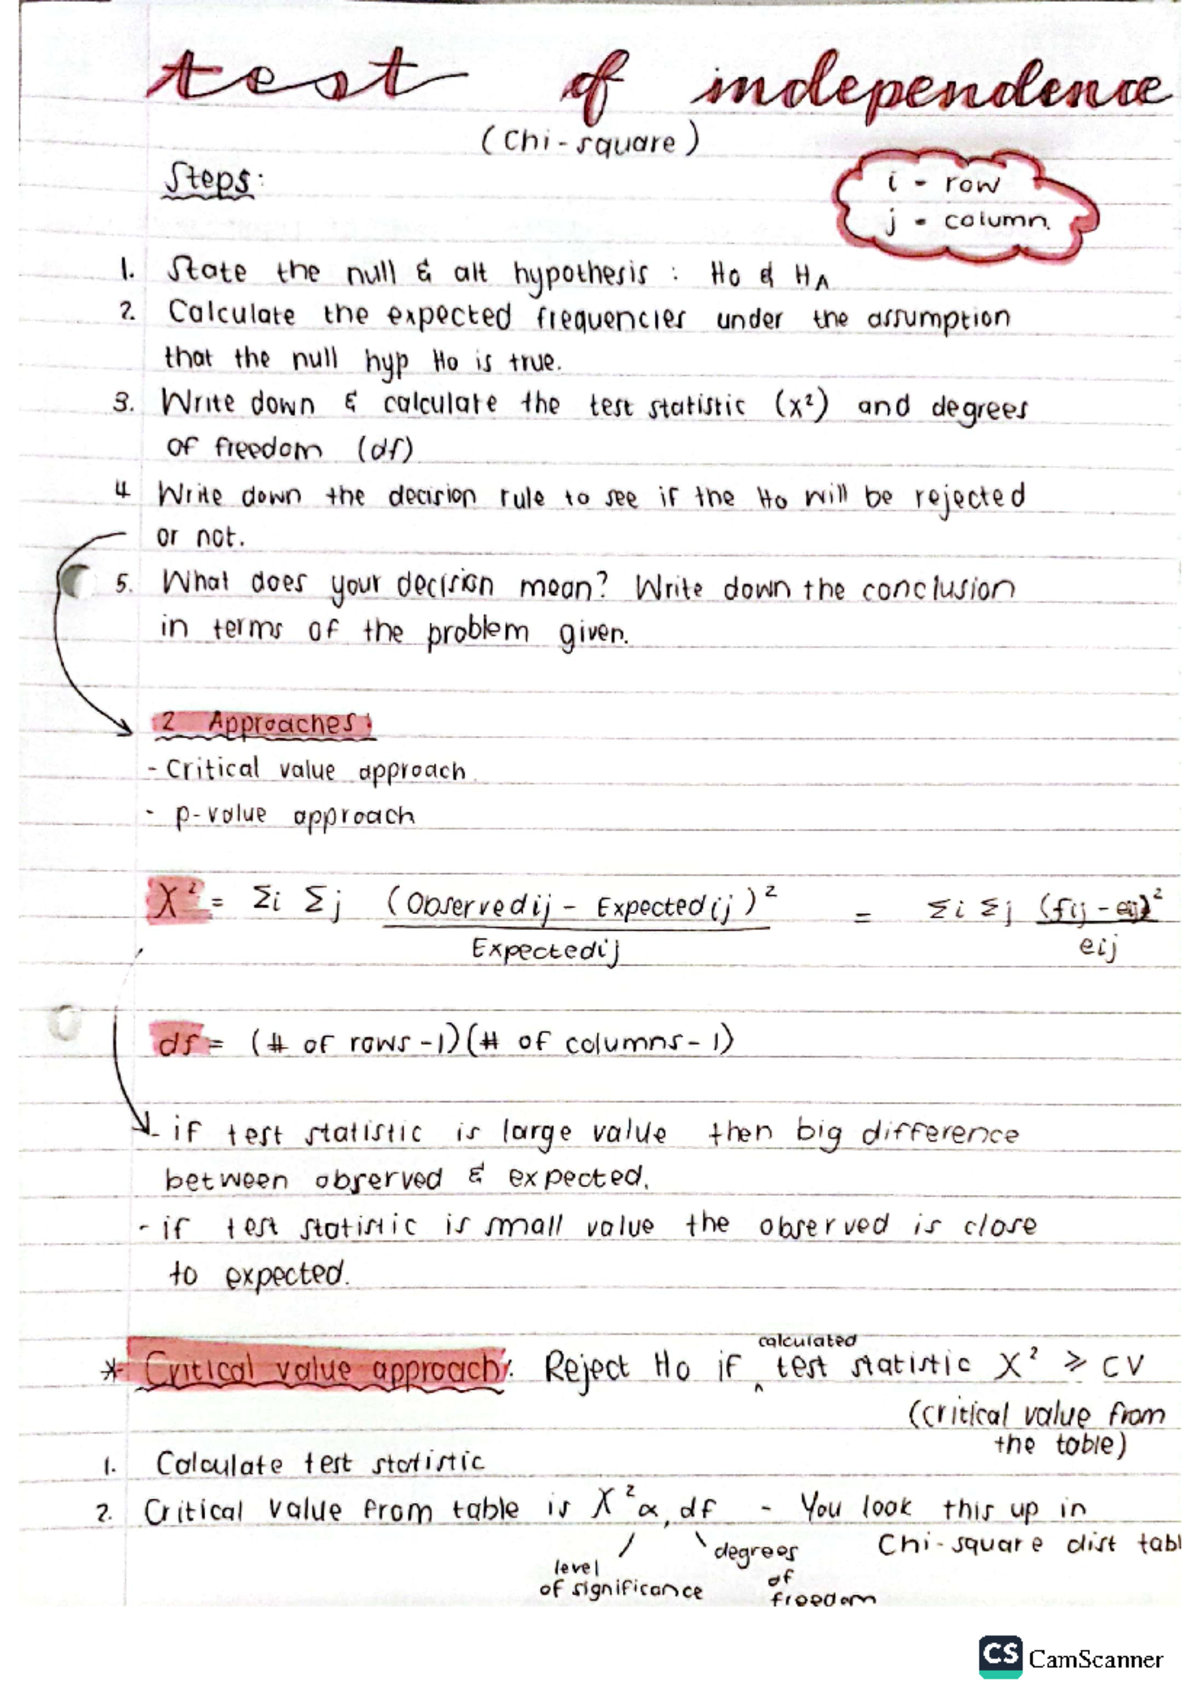 test of independence
(Chi-square)
Steps:
i - row
j - column.
1. State the null & alt hypothesis : Ho & HA
2. Calculate the expected frequencies under the assumption
that the null hyp Ho is true.
3. Write down & calculate the test statistic (X²) and degrees
of freedom (df)
4 Write down the decision rule to see if the Ho will be rejected
or not.
5. What does your decision mean? Write down the conclusion
in terms of the problem given.
2 Approaches:
- Critical value approach
- p-value approach
X² = Σi Σj (Observedij - Expectedij)² / Expectedij = Σi Σj (fij - eij)² / eij
df = (# of rows -1)(# of columns - 1)
- if test statistic is large value then big difference
between observed & expected.
- if test statistic is small value the observed is close
to expected.
calculated
* Critical value approach: Reject Ho if ^ test statistic X² ≥ CV
(critical value from
the table)
1. Calculate test statistic
2. Critical value from table is X²α, df - You look this up in
Chi-square dist tabl
level
of significance
degrees
of
freedom
CS CamScanner